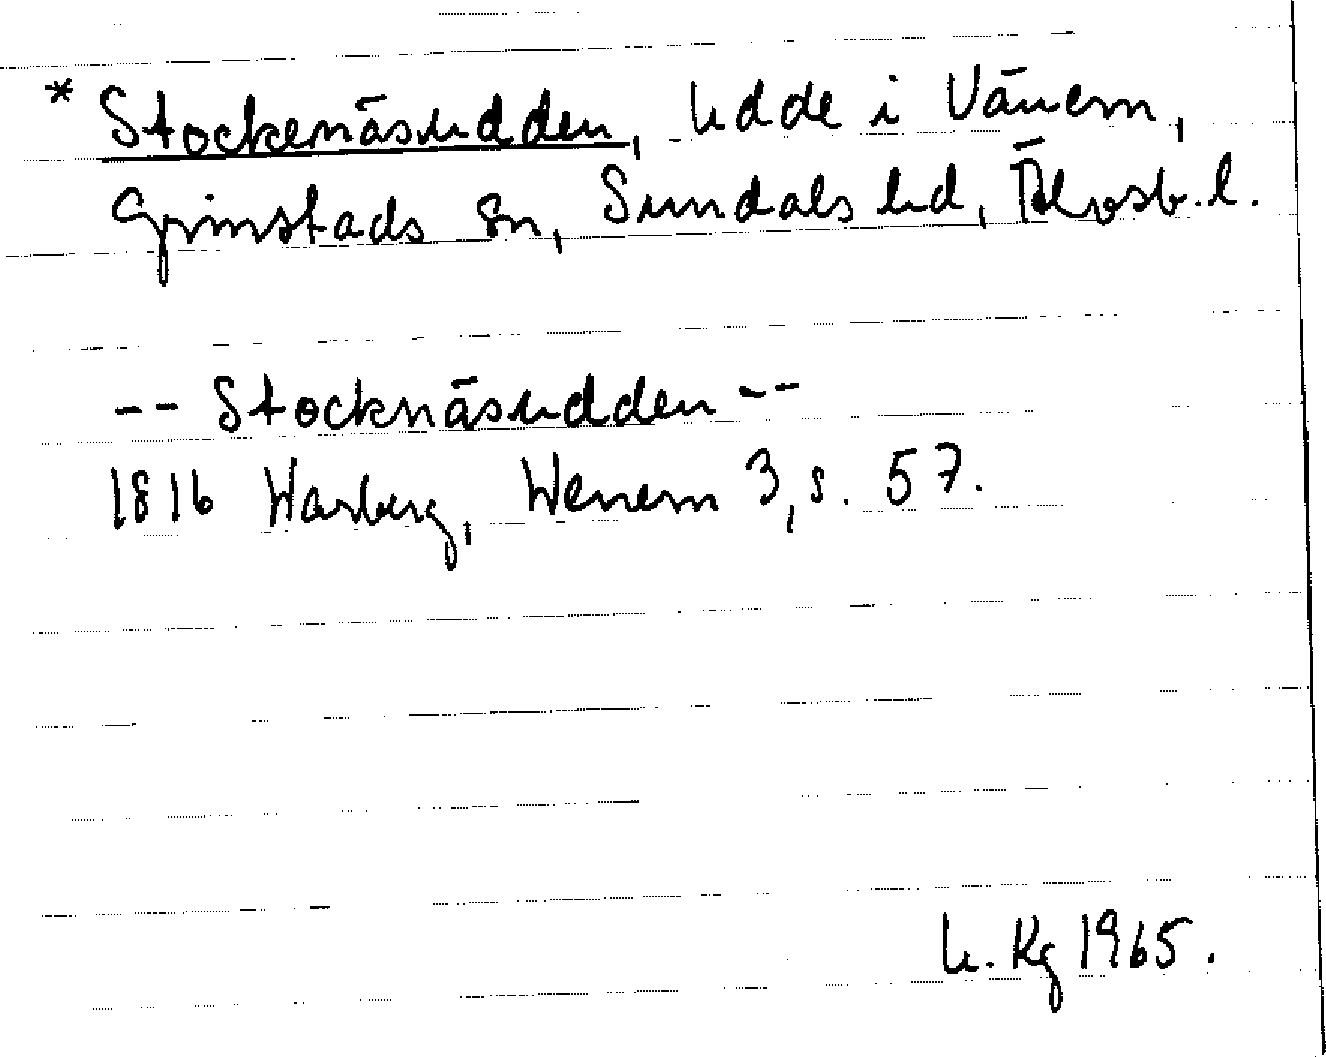 * Stockenäsudden, Udde i Vänern,
Grinstads sn, Sundals hd, Älvsb. l.
-- Stocknäsudden --
1816 Warberg, Wenern 3, s. 57.
U. Kg 1965.